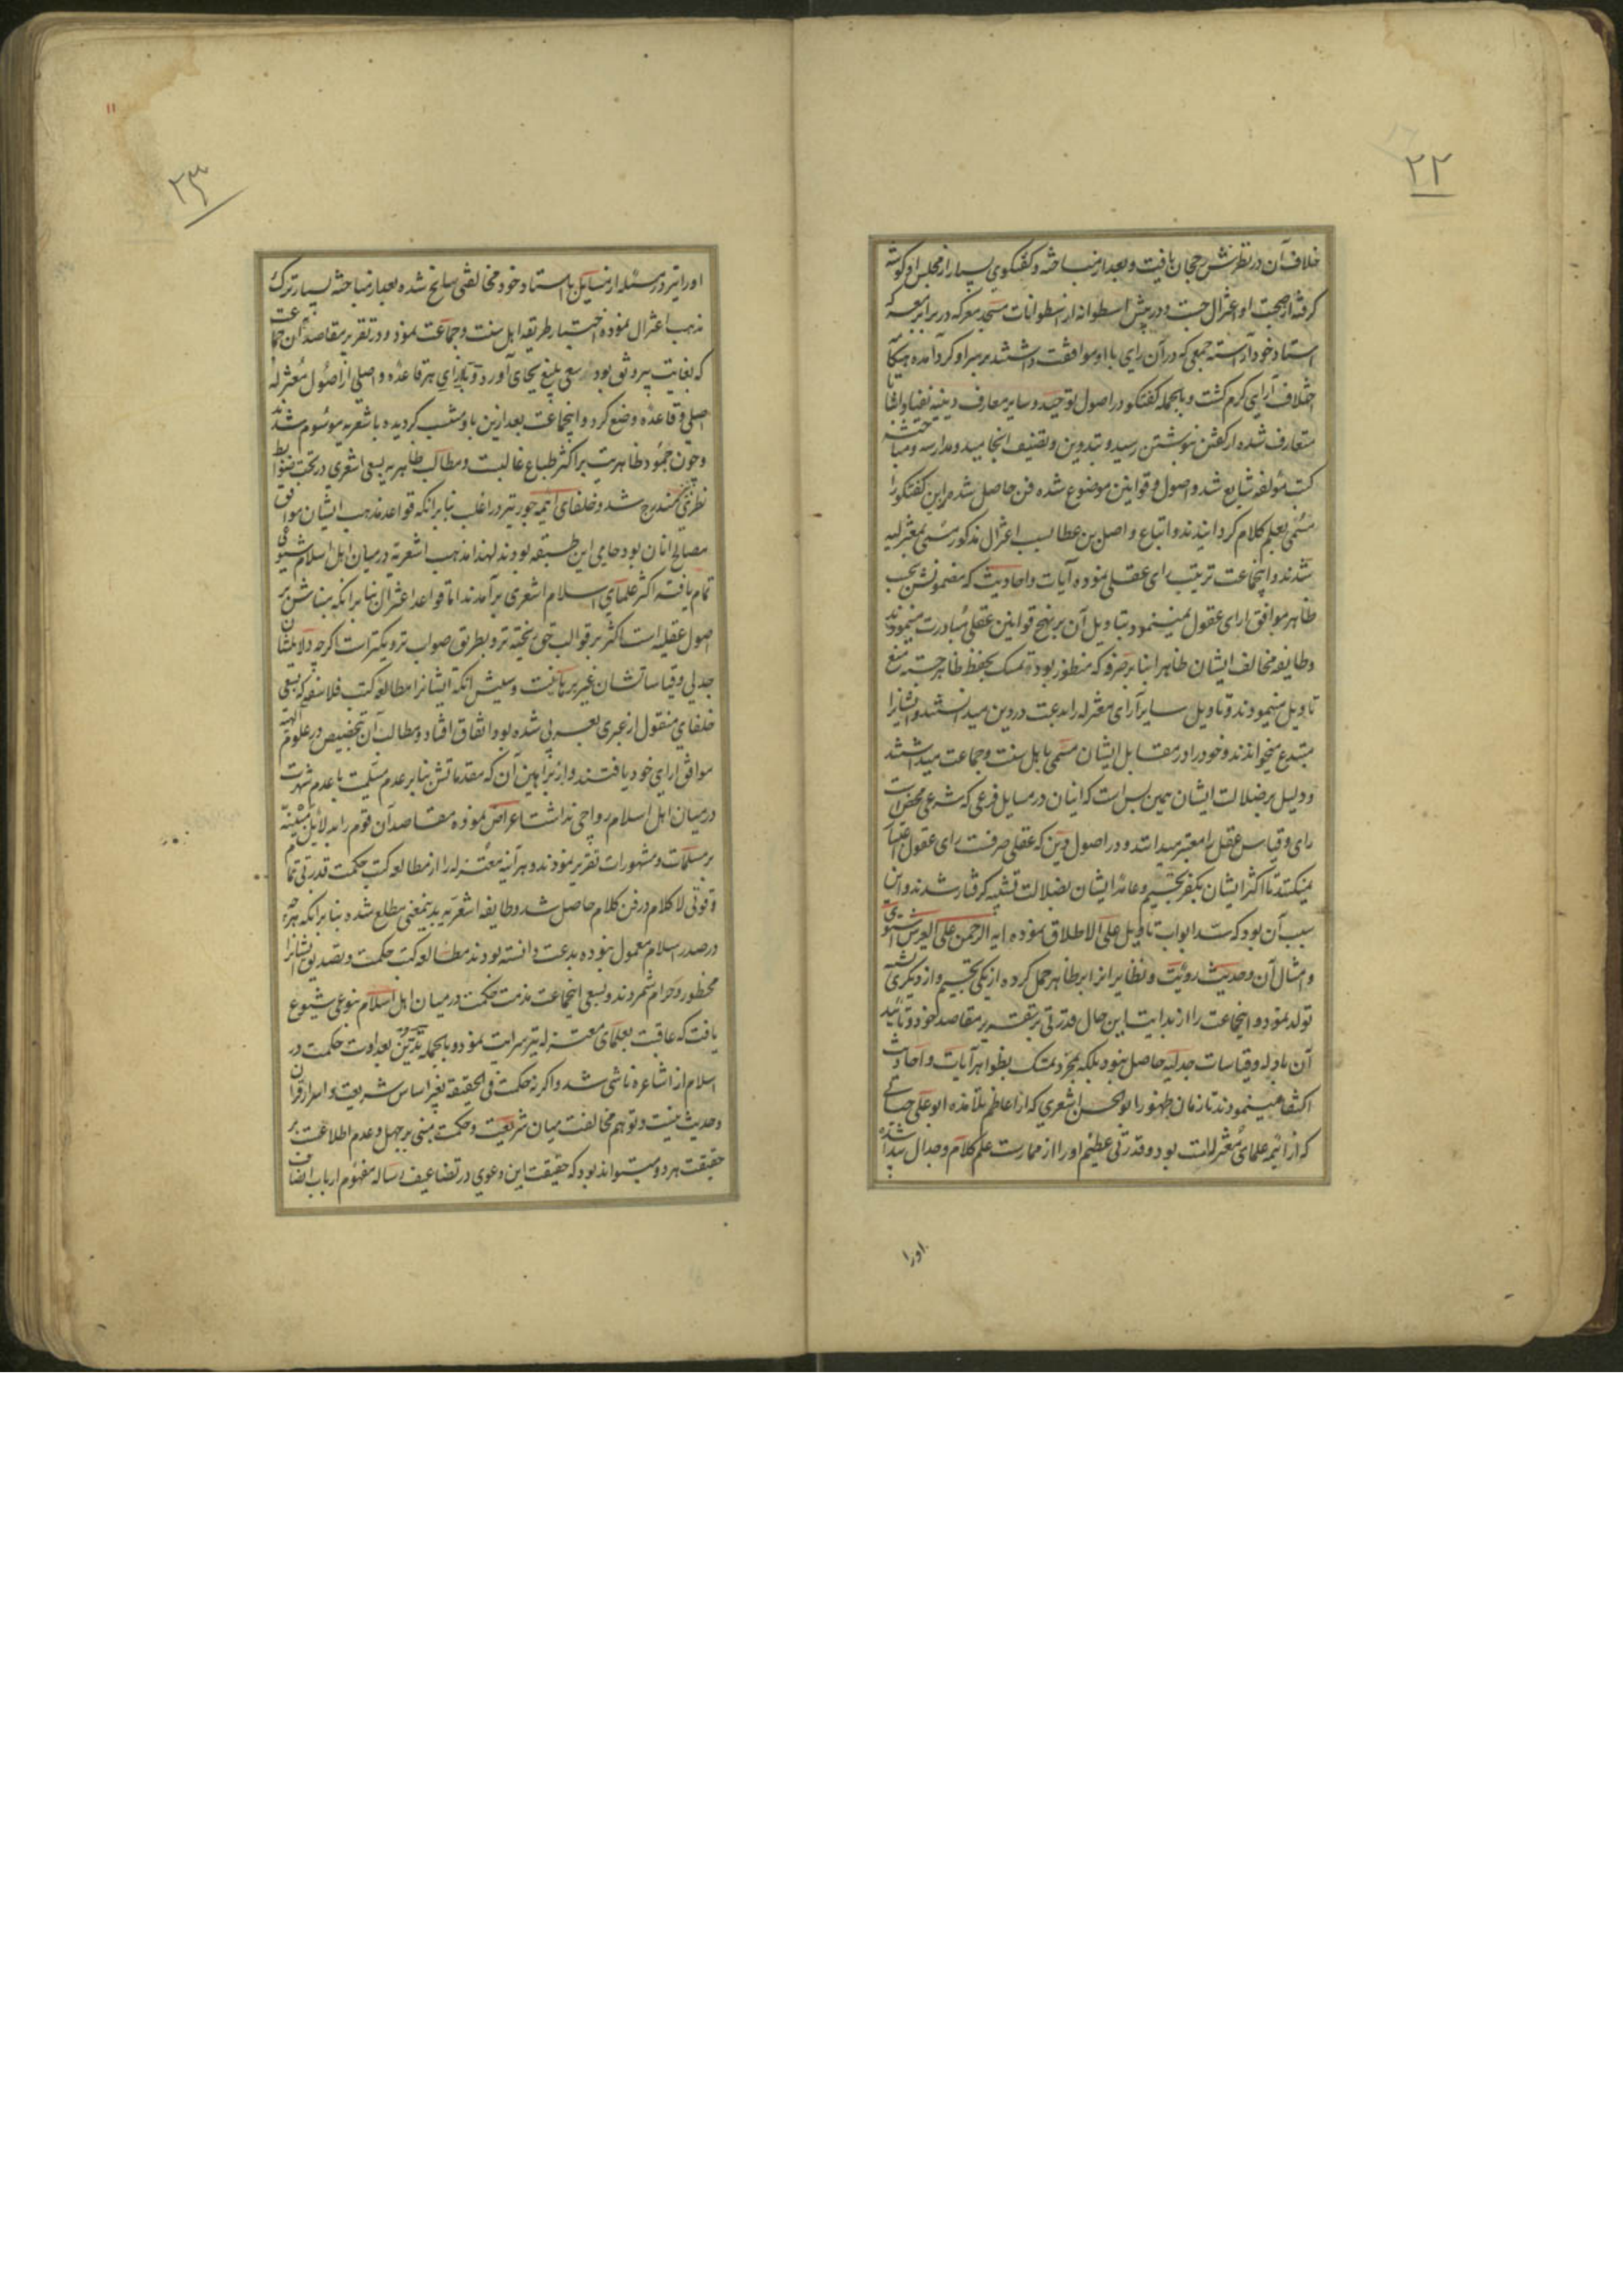 ۲۲
خلاف آن در نظرش رجحان یافت و بعد از مباحثه و گفتگوی بسیار از مجلس او گوشه
گرفته از صحبت او اعتزال جست و در پیش اسطوانه از اسطوانات مسجد معرکه در برابر معرکه
استاد خود آراسته جمعی که در آن رای با او موافقت داشتند بر سر او گرد آمده هنگامه
اختلاف آرایی گرم گشت و بالجمله گفتگو در اصول توحید و سایر معارف دینیه نفیا و اثباتا
متعارف شده از گفتن بنوشتن رسید و بتدوین و تصنیف انجامید و مدارسه و مباحثه
کتب مؤلفه شایع شد و اصول و قوانین موضوع شده فن حاصل شد مر این گفتگو را
مسمی بعلم کلام گردانیدند و اتباع واصل بن عطا بسبب اعتزال مذکور مسمی بمعتزله
شدند و اینجماعت ترتیب رای عقلی نموده آیات و احادیث که مضمونش بحسب
ظاهر موافق ارای عقول نمینمود بتاویل آن بر نهج قوانین عقلی مبادرت مینمودند
و طایفه مخالف ایشان ظاهرا بنا بر صرفه که منظور بود تمسک بحفظ ظاهر جسته منع
تاویل مینمودند و تاویل سایر آرای معتزله را بدعت در دین میدانستند و ایشانرا
مبتدع میخواندند و خود را در مقابل ایشان مسمی باهل سنت و جماعت میداشتند
و دلیل بر ضلالت ایشان همین بس است که اینان در مسایل فرعی که شرعی محض است
رای و قیاس عقل را معتبر میدانند و در اصول دین که عقلی صرفست رای عقول اعتبار
نمیکنند تا اکثر ایشان بکفر تجسیم و عامهٔ ایشان بضلالت تشبیه گرفتار شدند و این
سبب آن بود که سد ابواب تاویل علی الاطلاق نموده ایه الرحمن علی العرش استوی
و امثال آن و حدیث رؤیت و نظایر انرا بر ظاهر حمل کرده از یکی تجسیم و از دیگری تشبیه
تولد نمود و اینجماعت را از بدایت این حال قدرتی بر تقریر مقاصد خود و تائید
آن بادله و قیاسات جدلیه حاصل نبود بلکه بمجرد تمسک بظواهر آیات و احادیث
اکتفا مینمودند تا زمان ظهور ابوالحسن اشعری که از اعاظم تلامذه ابوعلی جبائی
که از ائمه علمای معتزله است بود و قدرتی عظیم او را از ممارست علم کلام و جدال پیدا شده
اورا
۲۳
۱۱
او را نیز در مسئله از مسایل با استاد خود مخالفتی سانح شده بعد از مباحثه بسیار ترک
مذهب اعتزال نموده اختیار طریقه اهل سنت و جماعت نمود و در تقریر مقاصد این جماعت
که بغایت بیرونق بود سعی بلیغ بجای آورد و بازای هر قاعده و اصلی از اصول معتزله
اصلی و قاعده وضع کرد و اینجماعت بعد ازین باو منتسب گردیده باشعریه موسوم شدند
و چون جمود ظاهریت بر اکثر طباع غالبست و مطالب ظاهریه بسعی اشعری در تحت ضوابط
نظری مندرج شد و خلفای ائمه جور نیز در اغلب بنا بر انکه قواعد مذهب ایشان موافق
مصالح انان بود حامی این طبقه بودند لهذا مذهب اشعریه در میان اهل اسلام شیوعی
تمام یافته اکثر علمای اسلام اشعری برآمدند اما قواعد اعتزال بنا بر انکه بنایش بر
اصول عقلیه است اکثر بر قوالب حق ریخته تر و بطریق صواب نزدیکتر است اگرچه دلایلشان
جدلی و قیاساتشان غیر برهانیست و سببش انکه ایشانرا مطالعه کتب فلاسفه که بسعی
خلفای منقول از عبری بعربی شده بود اتفاق افتاد و مطالب آن بتخصیص در علوم الهیه
موافق ارای خود یافتند و از براهین آن که مقدماتش بنا بر عدم مسلمیت یا عدم شهرت
در میان اهل اسلام رواجی نداشت اعراض نموده مقاصد آن قوم را بدلائل مبتنیه
بر مسلمات و مشهورات تقریر نمودند و هر آینه معتزله را از مطالعه کتب حکمت قدرتی تمام
و قوتی لا کلام در فن کلام حاصل شد و طایفه اشعریه بدینمعنی مطلع شده بنا بر انکه هرچه
در صدر اسلام معمول نبوده بدعت دانسته بودند مطالعه کتب حکمت و تصدیق ایشانرا
محظور و حرام شمردند و بسعی اینجماعت مذمت حکمت در میان اهل اسلام بنوعی شیوع
یافت که عاقبت بعلمای معتزله نیز سرایت نمود و بالجمله تدین بعداوت حکمت در
اسلام از اشاعره ناشی شد و اگر نه حکمت فی الحقیقة بغیر اساس شریعت و اسرار قرآن
و حدیث نیست و توهم مخالفت میان شریعت و حکمت مبنی بر جهل و عدم اطلاعست بر
حقیقت هر دو و میتواند بود که حقیقت این دعوی در تضاعیف رساله مفهوم ارباب انصاف